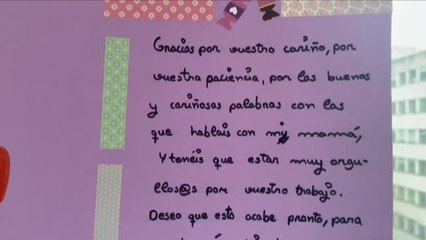 Gracias por vuestro cariño, por
vuestra paciencia, por las buenas
y cariñosas palabras con las
que habláis con mi mamá,
Y tenéis que estar muy orgu-
llos@s por vuestro trabajo.
Deseo que esto acabe pronto, para